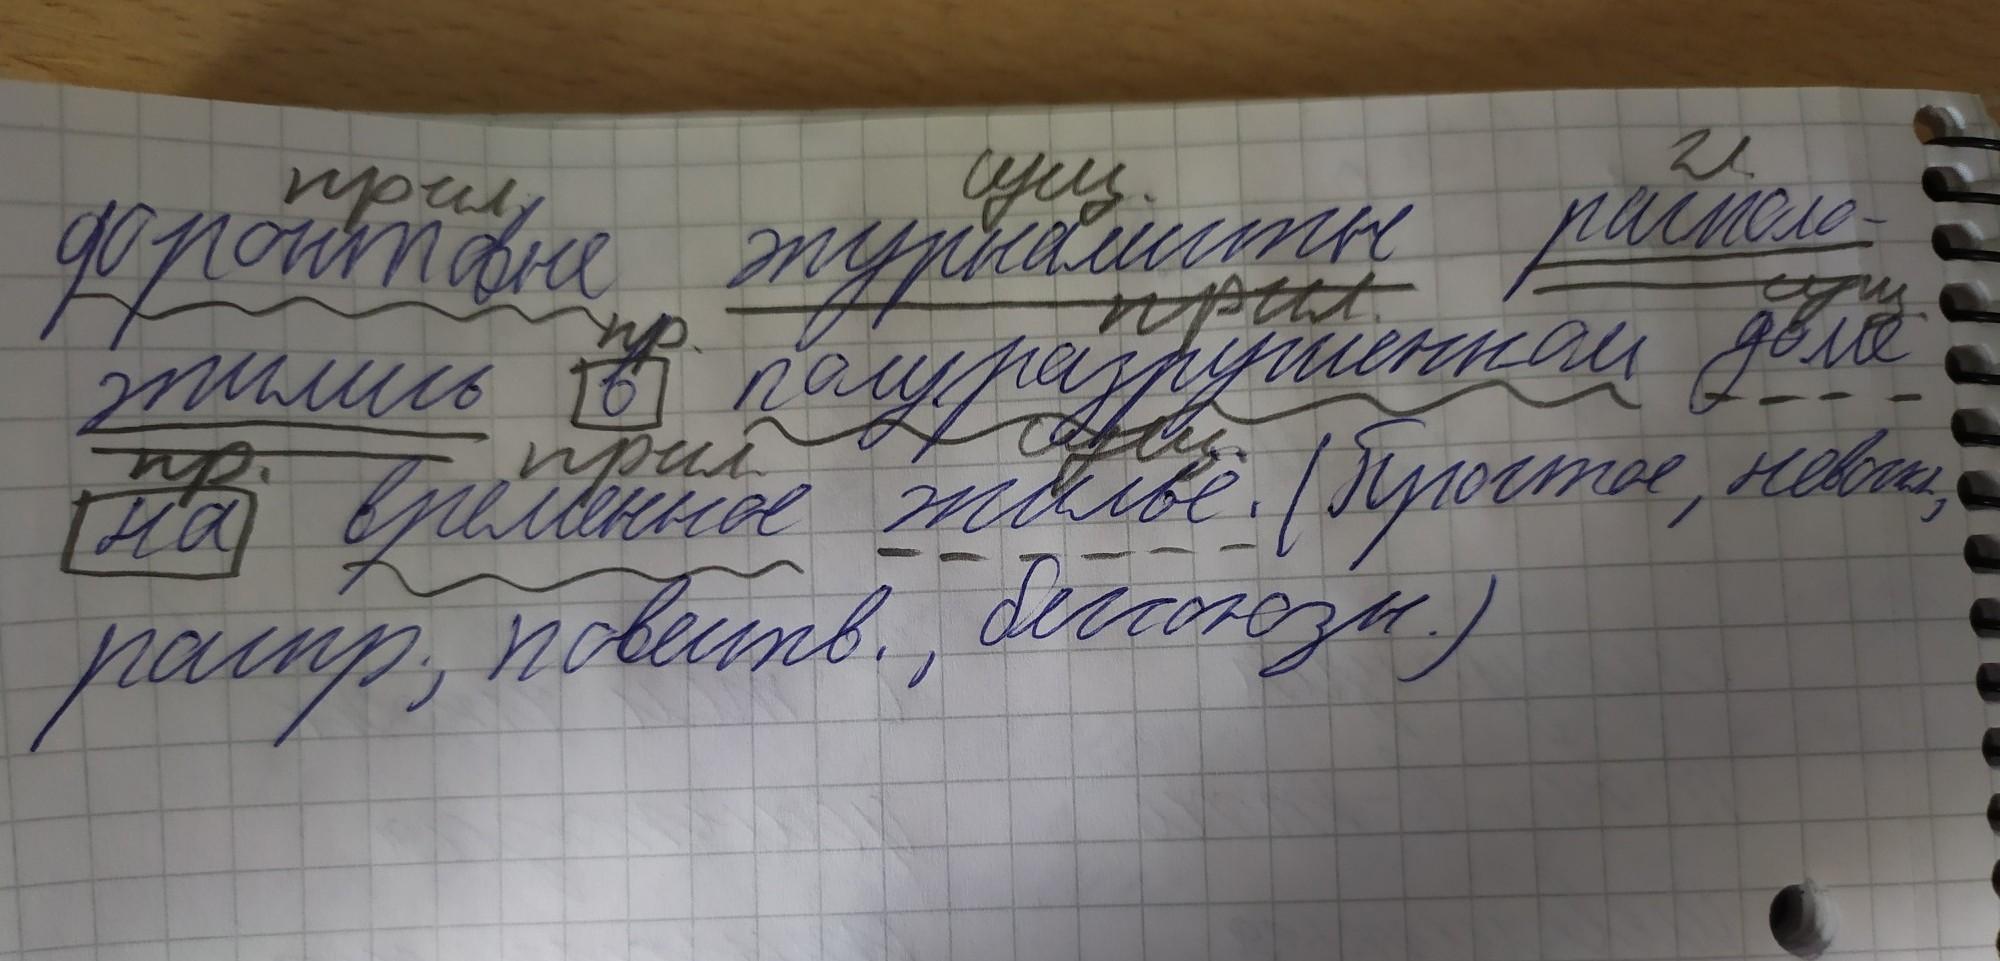 прил. сущ. гл.
фронтовые журналисты располо-
пр. прил. сущ.
жились в полуразрушенном доме
пр. прил. сущ.
на временное жилье. (Простое, невоскл,
распр., повеств., бессоюзн.)